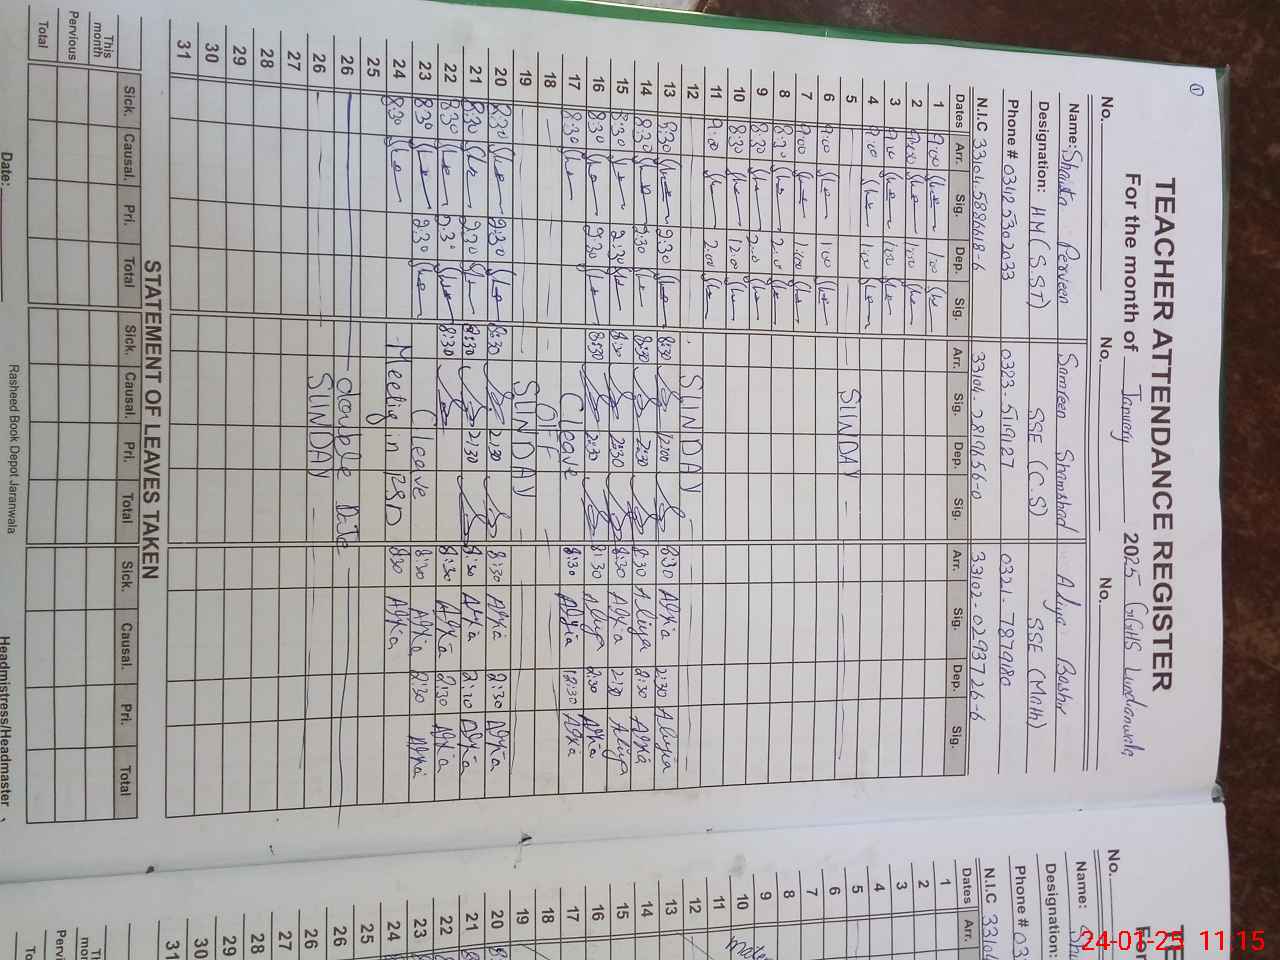 TEACHER ATTENDANCE REGISTER
For the month of January 2025 GGHS Lundianwala
No. No. No.
Name: Shaista Perveen Samreen Shamshad Aliya Bashir
Designation: HM (S.ST) SSE (C.S) SSE (Math)
Phone # 03425302033 0323-5119127 0321-7879180
N.I.C 33104-5886618-6 33104-2819656-0 33102-0293726-6
Dates Arr. Sig. Dep. Sig. Arr. Sig. Dep. Sig. Arr. Sig. Dep. Sig.
1 9:00 1:00
2 9:00 1:00
3 9:00 1:00
4 9:00 1:00
5 SUNDAY
6 9:00 1:00
7 9:00 1:00
8 8:30 2:00
9 8:30 2:00
10 8:30 12:00
11 9:00 2:00
12 SUNDAY
13 8:30 2:30 8:30 12:00 8:30 Aliya 2:30 Aliya
14 8:30 2:30 8:30 2:30 8:30 Aliya 2:30 Aliya
15 8:30 2:30 8:30 2:30 8:30 Aliya 2:30 Aliya
16 8:30 2:30 8:30 2:30 8:30 Aliya 2:30 Aliya
17 8:30 C leave 8:30 Aliya 12:30 Aliya
18 OFF
19 SUNDAY
20 8:30 2:30 8:30 2:30 8:30 Aliya 2:30 Aliya
21 8:30 2:30 8:30 2:30 8:30 Aliya 2:30 Aliya
22 8:30 2:30 8:30 8:30 Aliya 2:30 Aliya
23 8:30 2:30 C leave 8:30 Aliya 2:30 Aliya
24 8:30 Meeting in 8:30 Aliya
25
26 double Date
26 SUNDAY
27
28
29
30
31
STATEMENT OF LEAVES TAKEN
Sick. Causal. Pri. Total Sick. Causal. Pri. Total Sick. Causal. Pri. Total
This month
Pervious
Total
Date: Rasheed Book Depot Jaranwala Headmistress/Headmaster
No.
Name:
Designation:
Phone # 03
N.I.C 33104
Dates Arr.
1
2
3
4
5
6
7
8
9
10
11
12
13
14
15
16
17
18
19
20
21
22
23
24
25
26
26
27
28
29
30
31
24-01-25 11:15